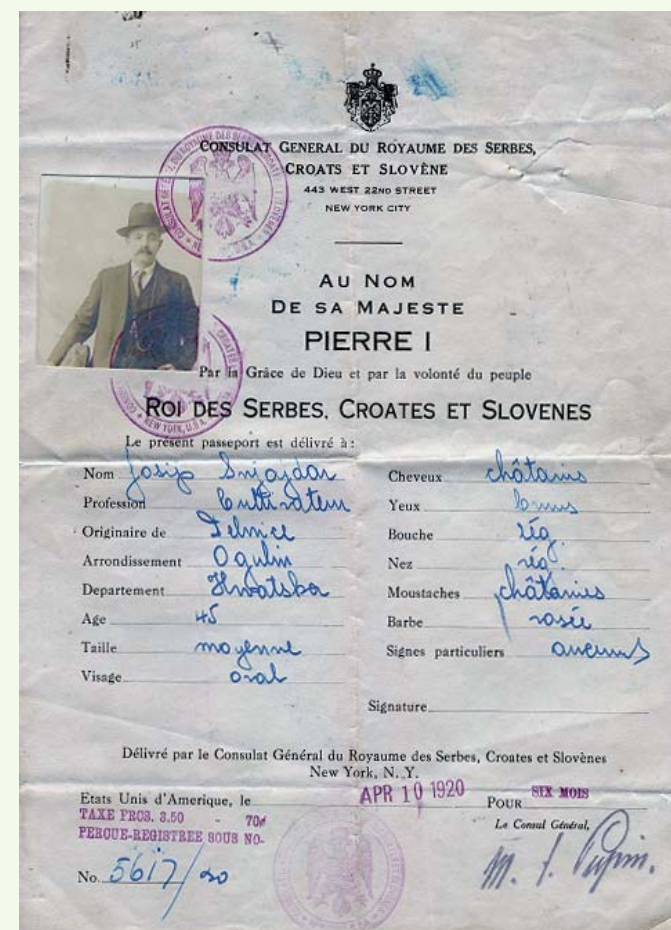 CONSULAT GENERAL DU ROYAUME DES SERBES,
CROATS ET SLOVÈNE
443 WEST 22ND STREET
NEW YORK CITY
AU NOM
DE SA MAJESTE
PIERRE I
Par la Grâce de Dieu et par la volonté du peuple
ROI DES SERBES, CROATES ET SLOVENES
Le présent passeport est délivré à:
Nom Josip Snjajdar
Profession Cultivateur
Originaire de Delnice
Arrondissement Ogulin
Departement Hrvatska
Age 45
Taille moyenne
Visage oval
Cheveux châtains
Yeux bruns
Bouche rég.
Nez rég.
Moustaches châtaines
Barbe rasée
Signes particuliers aucuns
Signature
Délivré par le Consulat Général du Royaume des Serbes, Croates et Slovènes
New York, N. Y.
Etats Unis d'Amerique, le APR 10 1920 POUR SIX MOIS
TAXE FRCS. 3.50 - 70¢
PERCUE-REGISTREE SOUS NO-
No. 5617/20
Le Consul Général,
M. I. Pupin.